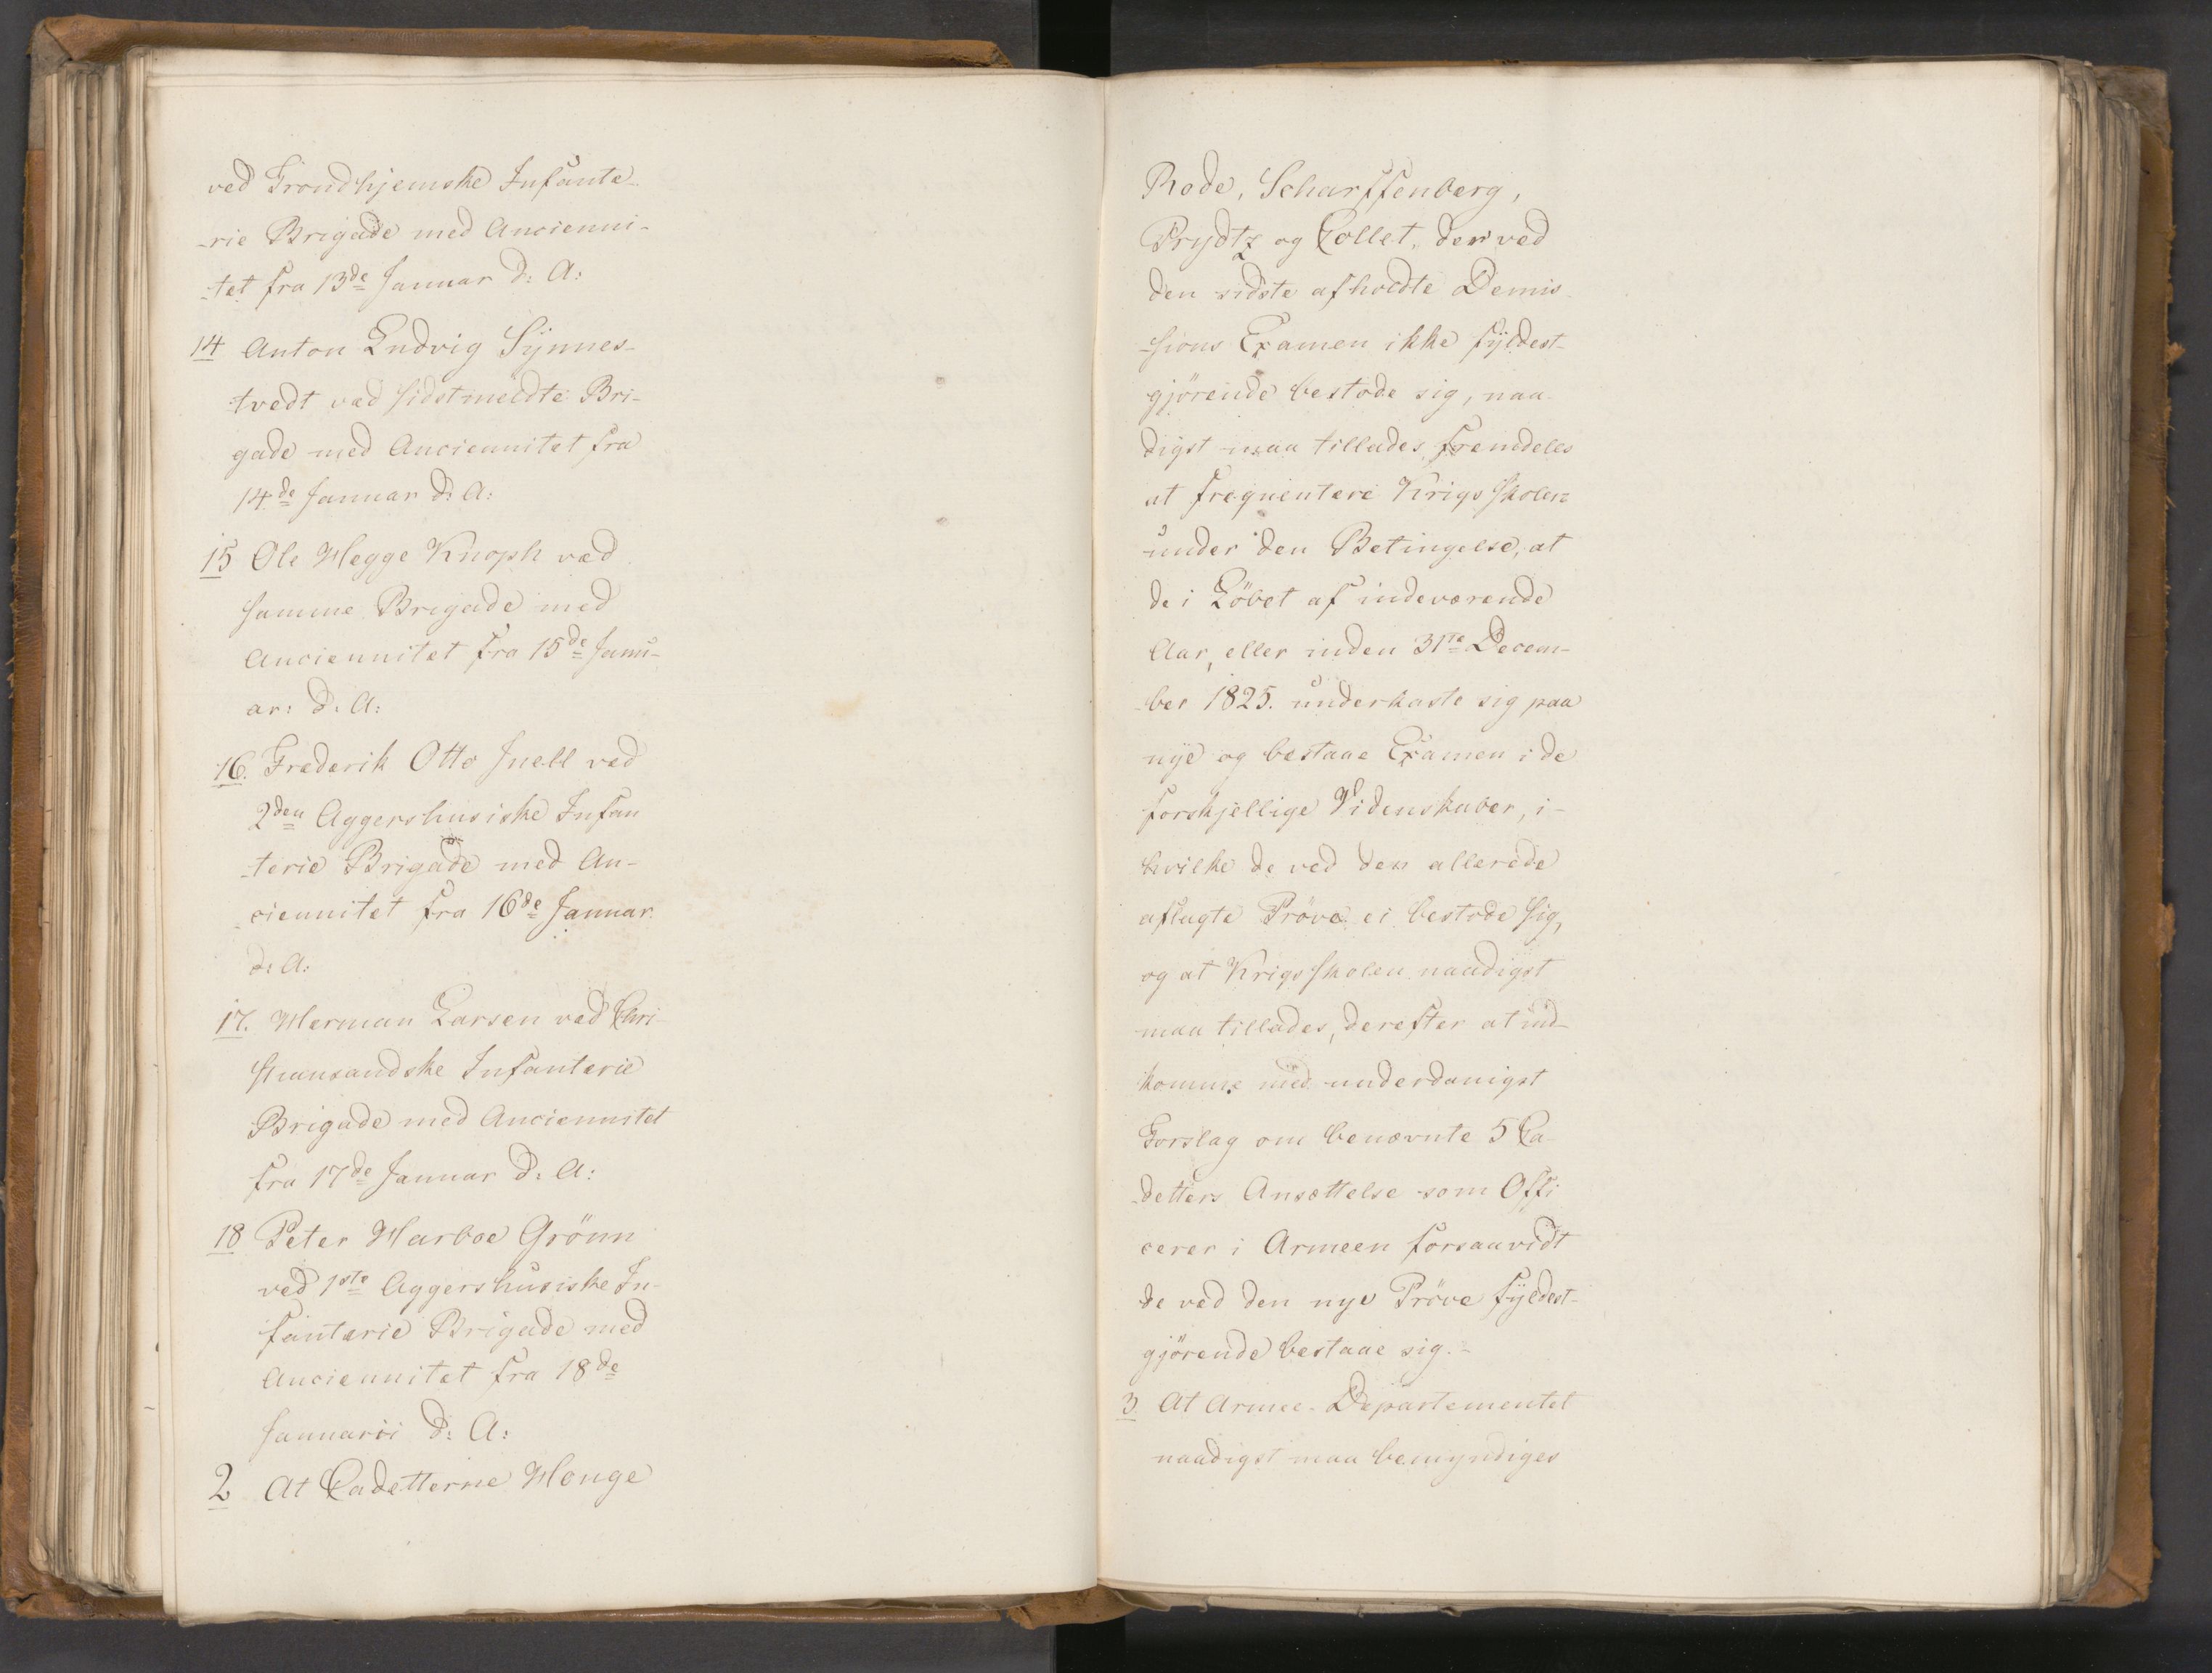 ved Trondhjemske Infante-
-rie Brigade med Ancienni-
-tet fra 13de Januar d: A:
14 Anton Ludvig Synnes-
-tvedt ved sidstmeldte Bri-
gade med Anciennitet fra
14de Januar d: A:
15 Ole Hegge Knoph ved
samme Brigade med
Anciennitet fra 15de Janu-
ar: d: A:
16. Frederik Otto Juell ved
2den Aggershusiske Infan
-terie Brigade med An-
ciennitet fra 16de Januar
d: A:
17. Herman Larsen ved Chri-
stiansandske Infanterie
Brigade med Anciennitet
fra 17de Januar d: A:
18 Peter Harboe Grönn
ved 1ste Aggershusiske In-
fanterie Brigade med
Anciennitet fra 18de
Januarii d: A:
2 At Cadetterne Houge
Rode, Scharffenberg,
Prydtz og Collet, der ved
den sidste afholdte Demis
-sions Examen ikke fyldest-
gjörende bestode sig, naa-
digst maa tillades fremdeles
at frequentere Krigsskolen
under den Betingelse, at
de i Löbet af indeværende
Aar, eller inden 31te Decem-
-ber 1825. underkaste sig paa
nye og bestaae Examen i de
forskjellige Videnskaber, i-
hvilke de ved den allerede
aflagte Pröve ei bestode sig,
og at Krigsskolen naadigst
maa tillades, derefter at ind-
komme med underdanigst
Forslag om benævnte 5 Ca-
-detters Ansættelse som Offi
cerer i Armeen forsaavidt
de ved den nye Pröve fyldest-
gjörende bestaae sig.-
3. At Armee-Departementet
naadigst maa bemyndiges